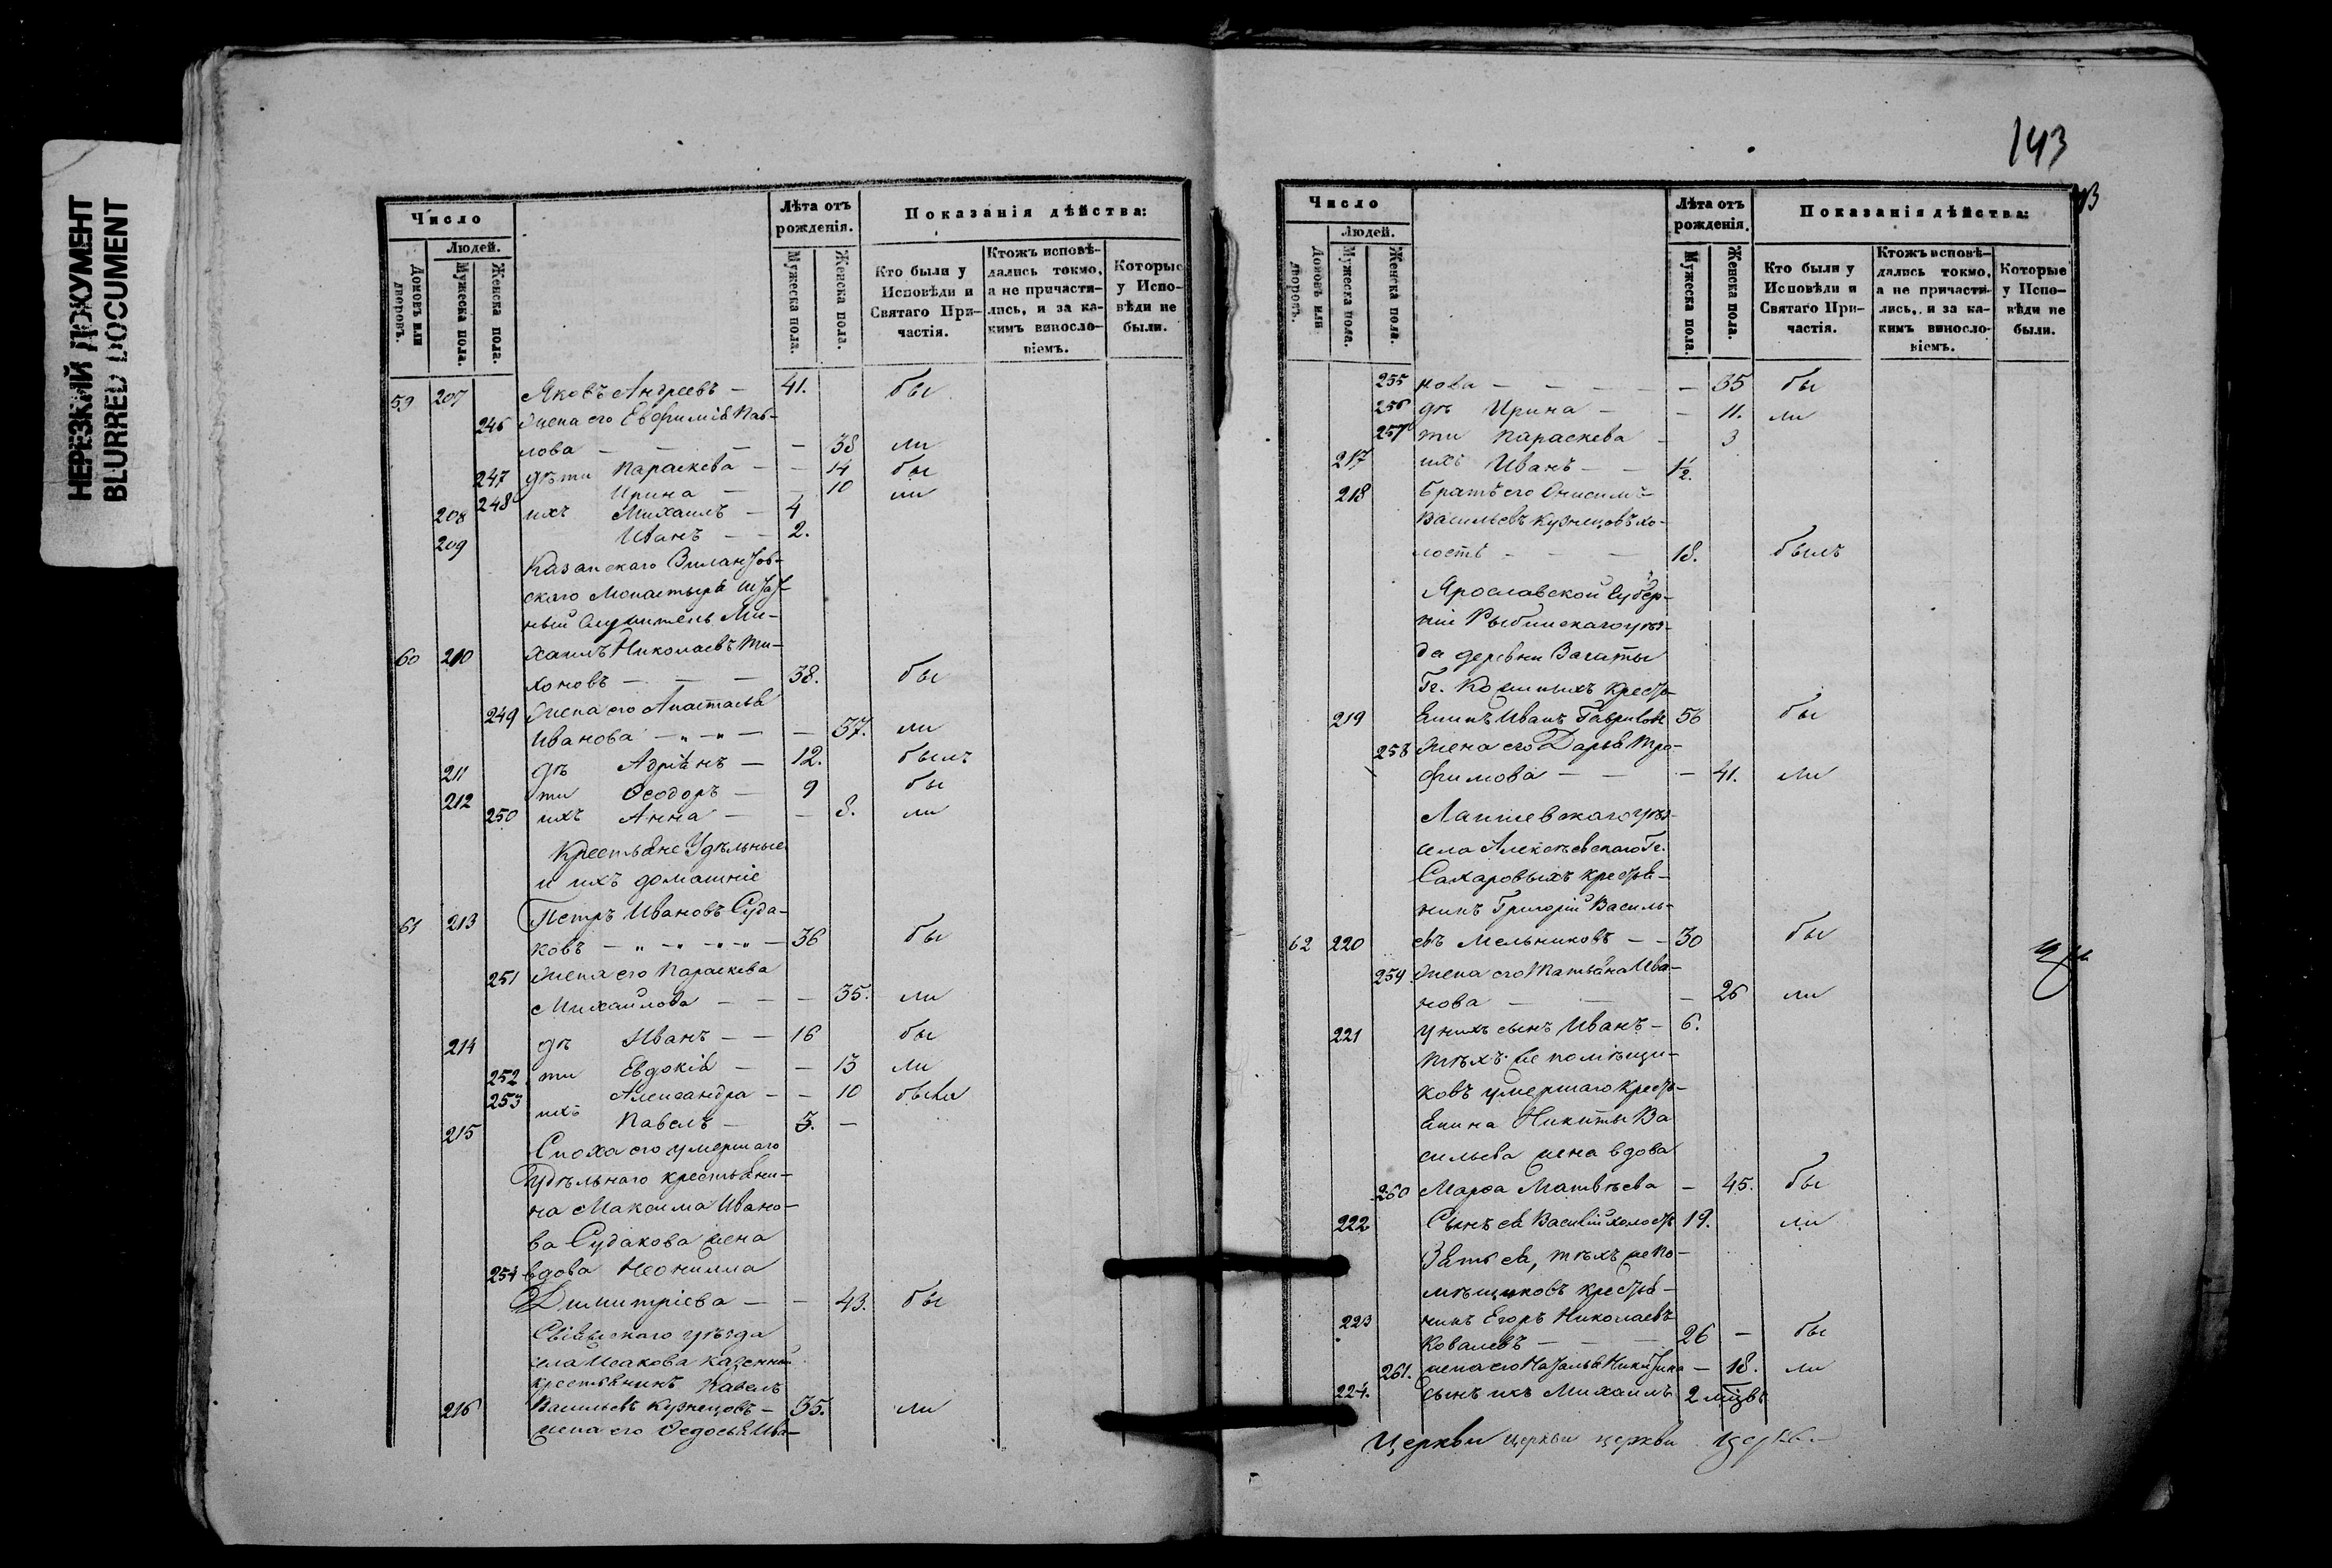 НЕРЕЗКИЙ ДОКУМЕНТ
BLURRED DOCUMENT
Число
Людей.
Домовъ или дворовъ.
Мужеска пола.
Женска пола.
Лѣта отъ рожденія.
Мужеска пола.
Женска пола.
Показанія дѣйства:
Кто были у Исповѣди и Святаго Причастія.
Ктожъ исповѣ-
дались токмо,
а не причасти-
лись, и за ка-
кимъ виносло-
віемъ.
Которые
у Испо-
вѣди не
были.
59 207 Яковъ Андреевъ — 41. бы
246 Жена его Евфимія Пав-
лова — — — — 38 ли
247 дѣти Параскева — — 14 бы
248 Ирина — — 10 ли
208 ихъ Михаилъ — 4
209 Иванъ — — 2.
Казанскаго Зилантов-
скаго Монастыря штат-
ный служитель Ми-
60 210 хаилъ Николаевъ Ти-
хоновъ — — — 38. бы
249 Жена его Анастасья
Иванова — „ — „ — — 37. ли
211 дѣ Адріянъ — 12. былъ
212 ти Ѳеодоръ — 9 бы
250 ихъ Анна — — 8. ли
Крестьяне Удѣльные
и ихъ домашніе
61 213 Петръ Ивановъ Суда-
ковъ — „ — „ — „ — „ — 36 бы
251 Жена его Параскева
Михайлова — — — 35. ли
214 дѣ Иванъ — — 16 бы
252 ти Евдокія — — 13 ли
253 Александра — — 10 была
ихъ
215 Павелъ — 3. —
Сноха его умершаго
Удѣльнаго крестьяни-
на Максима Ивано-
ва Судакова жена
254 вдова Неонилла
Димитріева — — 43. бы
Свіяжскаго уѣзда
села Исакова казенный
крестьянинъ Павелъ
216 Васильевъ Кузнецовъ — 35. ли
жена его Ѳедосья Ива-
143
Число
Людей.
Домовъ или дворовъ.
Мужеска пола.
Женска пола.
Лѣта отъ рожденія.
Мужеска пола.
Женска пола.
Показанія дѣйства:
Кто были у Исповѣди и Святаго Причастія.
Ктожъ исповѣ-
дались токмо,
а не причасти-
лись, и за ка-
кимъ виносло-
віемъ.
Которые
у Испо-
вѣди не
были.
255 нова — — — — — 35 бы
256 дѣ Ирина — — 11. ли
257 ти Параскева — 3
217 ихъ Иванъ — — 1½.
218 Братъ его Онисимъ
Васильевъ Кузнецовъ хо-
лостъ — — — 18. былъ
Ярославской Губер-
ніи Рыбинскаго уѣз-
да деревни
Гг. крестья-
219 янинъ Иванъ Гавриловъ 56 бы
258 Жена его Дарья Тро-
фимова — — — 41. ли
Лаишевскаго уѣз-
села Алексѣевскаго Гг.
Сахаровыхъ крестья-
нинъ Григорій Василь-
62 220 евъ Мельниковъ — — 30 бы
259. Жена его Татьяна Ива-
нова — — — 26 ли
221 у нихъ сынъ Иванъ — 6.
тѣхъ же помѣщи-
ковъ умершаго кресть-
янина Никиты Ва
сильева жена вдова
260 Марѳа Матвѣева — 45. бы
222 Сынъ ея Василій холостъ 19. ли
Зять ея, тѣхъ же по-
мѣщиковъ крестья-
223 нинъ Егоръ Николаевъ
Ковалевъ — — — 26 — бы
261. жена его Наталья Никитина — 18. ли
224. сынъ ихъ Михаилъ 2 мѣцвъ
Церкви церкви церкви церкви